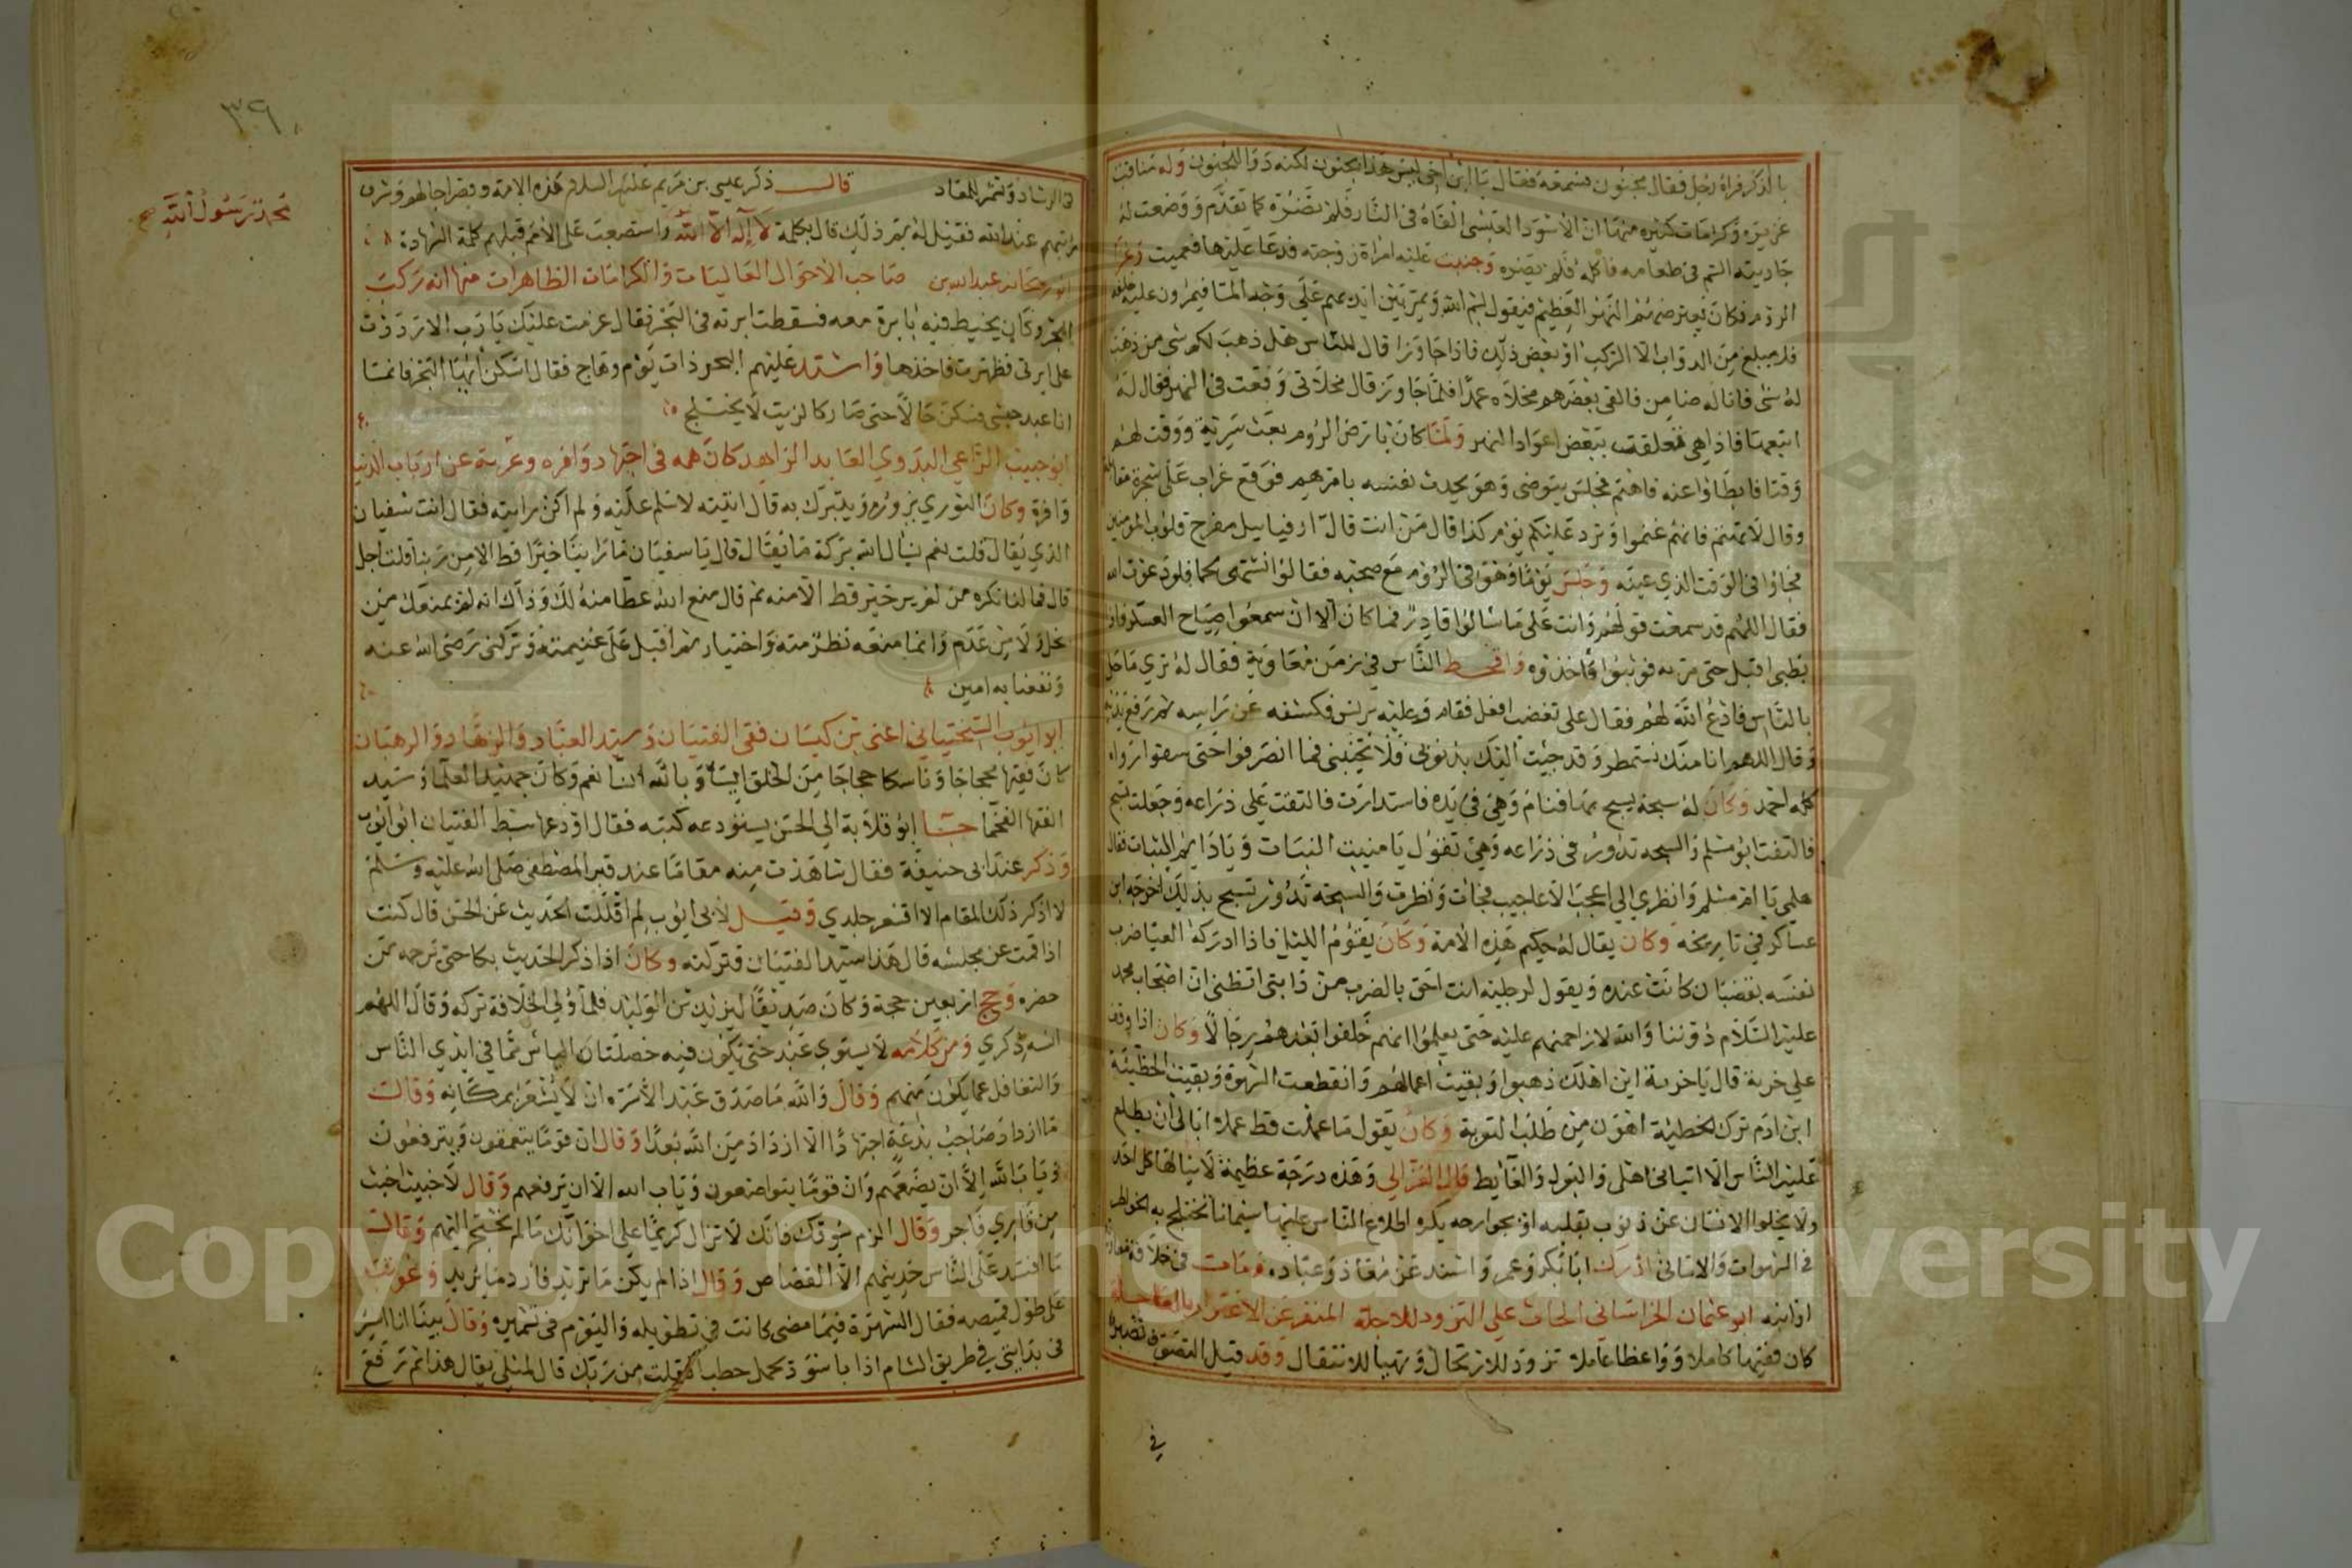 بالذكر فرآه رجل فقال مجنون فسمعه فقال يا ابن اخي ليس هذا بجنون لكنه دوا الجنون وله مناقب
عزيزة وكرامات كثيره منها ان الاسود العبسي القاه في النار فلم تضره كما تقدم ووضعت له
جاريته السم في طعامه فاكله فلم يضره وخببت عليه امراة زوجته فدعا عليها فعميت وغزا
الروم فكان فيعترضهم النهر العظيم فيقول بسم الله ويمر بين ايديهم على وجه الما فيمرون عليه خلفه
فلم يبلغ من الدواب الا الركب او بعض ذلك فاذا جاوزا قال للناس هل ذهب لكم شي من ذهب
له شي فانا له ضامن فالقى بعضهم مخلاه عمدا فلما جاوز قال مخلاتي وقعت في النهر فقال له
اتبعها فاذا هي معلقة ببعض اعواد النهر ولما كان بارض الروم بعث سرية ووقت لهم
وقتا فابطاوا عنه فاهتم فجلس يتوضى وهو يحدث نفسه بامرهم فوقع غراب على شجرة مقابله
وقال لا تهتم فانهم غنموا وترد عليكم يوم كذا قال من انت قال ارفياييل مفرح قلوب المومنين
فجاؤا في الوقت الذي عينه وجلس يوما وهو في الروم مع صحبه فقالوا نشتهي لحما فلو دعوت الله
فقال اللهم قد سمعت قولهم وانت على ما سالوا قادر فما كان الا ان سمعوا صياح العسكر فاذا
بظبي اقبل حتى مر به فوثبوا فاخذوه واقحط الناس في زمن معاوية فقال له تري ما حل
بالناس فادع الله لهم فقال على تغضب افعل فقام وعليه برنس فكشفه عن راسه ثم رفع يديه
وقال اللهم انا منك نستمطر وقد جيت اليك بذنوبي فلا تخيبني فما انصرفوا حتى سقوا رواه
كله احمد وكان له سبحة يسبح بها فنام وهي في يده فاستدارت فالتفت على ذراعه وجعلت تسبح
فالتفت ابو مسلم والسبحه تدور في ذراعه وهي تقول يا منبت النبات ويا دايم الثبات فقال
هلمي يا ام مسلم وانظري الي اعجب الاعاجيب فجات ونظرت والسبحة تدور تسبح بذلك اخرجه ابن
عساكر في تاريخه وكان يقال له حكيم هذه الامة وكان يقوم الليل فاذا ادركه العيا ضرب
نفسه بقضبان كانت عنده ويقول لرجليه انت احق بالضرب من دابتي اتظني ان اصحاب محمد
عليه السلام ذوننا والله لازاحمنهم عليه حتى يعلموا انهم خلفوا بعدهم رجالا وكان اذا وقف
علي خربة قال يا خربة اين اهلك ذهبوا وبقيت اعمالهم وانقطعت الشهوة وبقيت الخطيئة
ابن ادم ترك الخطيئة اهون من طلب التوبة وكان يقول ما عملت قط عملا ابالي ان يطلع
عليه الناس الا اتياني اهلي والبول والغايط قال الغزالي وهذه درجة عظيمة لا ينالها كل احد
ولا يخلوا الانسان عن ذنوب بقلبه او بجوارحه يكره اطلاع الناس عليها سيما ما تختلج به الخواطر
في الشهوات والاماني ادرك ابا بكر وعمر واسند عن معاذ وعباده ومات في خلافة معاوية
ابو عثمان الخراساني الحاث علي التزود للاجلة المنفر عن الاغترار بالعاجلة
كان فقيها كاملا وواعظا عاملا تزود للارتحال وتهيأ للانتقال وقد قيل التصوف تشمير
في
٣٩٠
في الرشاد وتشمر للمعاد قال ذكر عيسى بن مريم عليهما السلام هذه الامة وفضل رجالهم وشرف
مراتبهم عند الله فقيل له بم ذلك قال بكلمة لا إله الا الله واستصعبت على الامم قبلهم كلمة الشهادة
محمد رسول الله صح
ابو ريحانه عبد الله بن صاحب الاحوال العاليات والكرامات الظاهرات منها انه ركب
البحر وكان يخيط فيه بابرة معه فسقطت ابرته في البحر فقال عزمت عليك يا رب الا رددت
على ابرتي فظهرت فاخذها واشتد عليهم البحر ذات يوم وهاج فقال اسكن ايها البحر فانما
انا عبد حبشي فسكن حالا حتى صار كالزيت لا يختلج
ابو حبيب الراعي البدوي العابد الزاهد كان همه في اجتهاد وافره وعزبته عن ارباب الدنيا
وافرة وكان الثوري يزوره ويتبرك به قال اتيته لاسلم عليه ولم اكن رايته فقال انت سفيان
الذي يقال قلت نعم نسال الله بركة ما يقال قال يا سفيان ما راينا خيرا قط الا من ربنا قلت اجل
قال فما لنا نكره من لم ير خير قط الا منه ثم قال منع الله عطا منه لك وذاك انه لم يمنعك من
بخل ولا من عدم وانما منعه نظر منه واختيار ثم اقبل على غنيمته وتركني رضي الله عنه
ونفعنا به امين
ابو ايوب السختياني اعني بن كيسان فتى الفتيان وسيد العباد والزهاد والرهبان
كان فقيها محجاجا وناسكا حجاجا من الخلق ايسا وبالله انسا نعم وكان جهبيد العلما وسيد
الفقها الفخما حبسا ابو قلابة الي الحسن يستودعه كتبه فقال اودعها سبط الفتيان ابو ايوب
وذكر عند ابي حنيفة فقال شاهدت منه مقاما عند قبر المصطفى صلى الله عليه وسلم
لا اذكر ذلك المقام الا اقشعر جلدي وقيل لابي ايوب لم اقللت الحديث عن الحسن قال كنت
اذا قمت عن مجلسه قال هذا سيد الفتيان فتركته وكان اذا ذكر الحديث بكا حتى ترحمه من
حضره وحج اربعين حجة وكان صديقا ليزيد بن الوليد فلما ولي الخلافة تركه وقال اللهم
انسه ذكري ومن كلامه لا يستوي عبد حتى يكون فيه خصلتان الياس مما في ايدي الناس
والتغافل عما يكون منهم وقال والله ما صدق عبد الا سره ان لا يشعر بمكانه وقالت
ما ازداد صاحب بدعة اجتهادا الا ازداد من الله بعدا وقال ان قوما يتعمقون ويترفعون
ويابا الله الا ان يضعهم وان قوما يتواضعون وياب الله الا ان يرفعهم وقال لا خبيث اخبث
من قاري فاجر وقال الزم سوقك فانك لا تزال كريما على اخوانك ما لم تحتج اليهم وقالت
ما افسد على الناس حديثهم الا القصاص وقال اذا لم يكن ما تريد فارد ما يريد وعوتب
على طول قميصه فقال الشهرة فيما مضى كانت في تطويله واليوم في تشميره وقال بينا انا اسير
في بدايتي في طريق الشام اذا باسود يحمل حطبا فقلت من ربك قال لمثلي يقال هذا ثم رفع